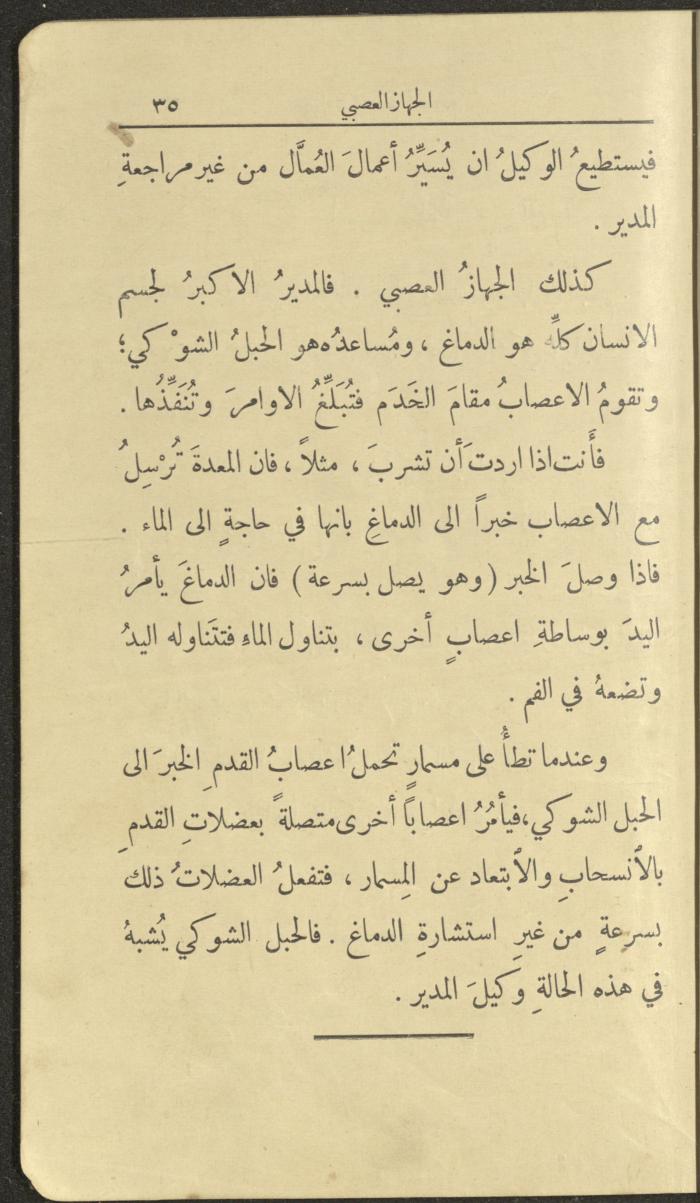 الجهاز العصبي ٣٥
فيستطيعُ الوكيلُ ان يُسَيِّرُ أعمالَ العُمَّال من غير مراجعةِ
المدير .
كذلك الجهازُ العصبي . فالمديرُ الاكبرُ لجسم
الانسان كلِّه هو الدماغ ، ومُساعدُه هو الحبلُ الشوْكي ؛
وتقومُ الاعصابُ مقامَ الخَدَم فتُبَلِّغُ الاوامرَ وتُنَفِّذُها .
فأَنت اذا اردتَ أن تشربَ ، مثلاً ، فان المعدةَ تُرْسِلُ
مع الاعصاب خبراً الى الدماغِ بانها في حاجةٍ الى الماء .
فاذا وصلَ الخبر ( وهو يصل بسرعة ) فان الدماغَ يأمرُ
اليدَ بوساطةِ اعصابٍ أخرى ، بتناول الماءِ فتتَناوله اليدُ
وتضعهُ في الفم .
وعندما تطأُ على مسمارٍ تحملُ اعصابُ القدمِ الخبرَ الى
الحبل الشوكي ، فيأمُرُ اعصاباً أخرى متصلةً بعضلاتِ القدمِ
بالاٌنسحابِ والاٌبتعاد عن المِسمار ، فتفعلُ العضلاتُ ذلك
بسرعةٍ من غيرِ استشارةِ الدماغ . فالحبل الشوكي يُشبهُ
في هذه الحالةِ وكيلَ المدير .